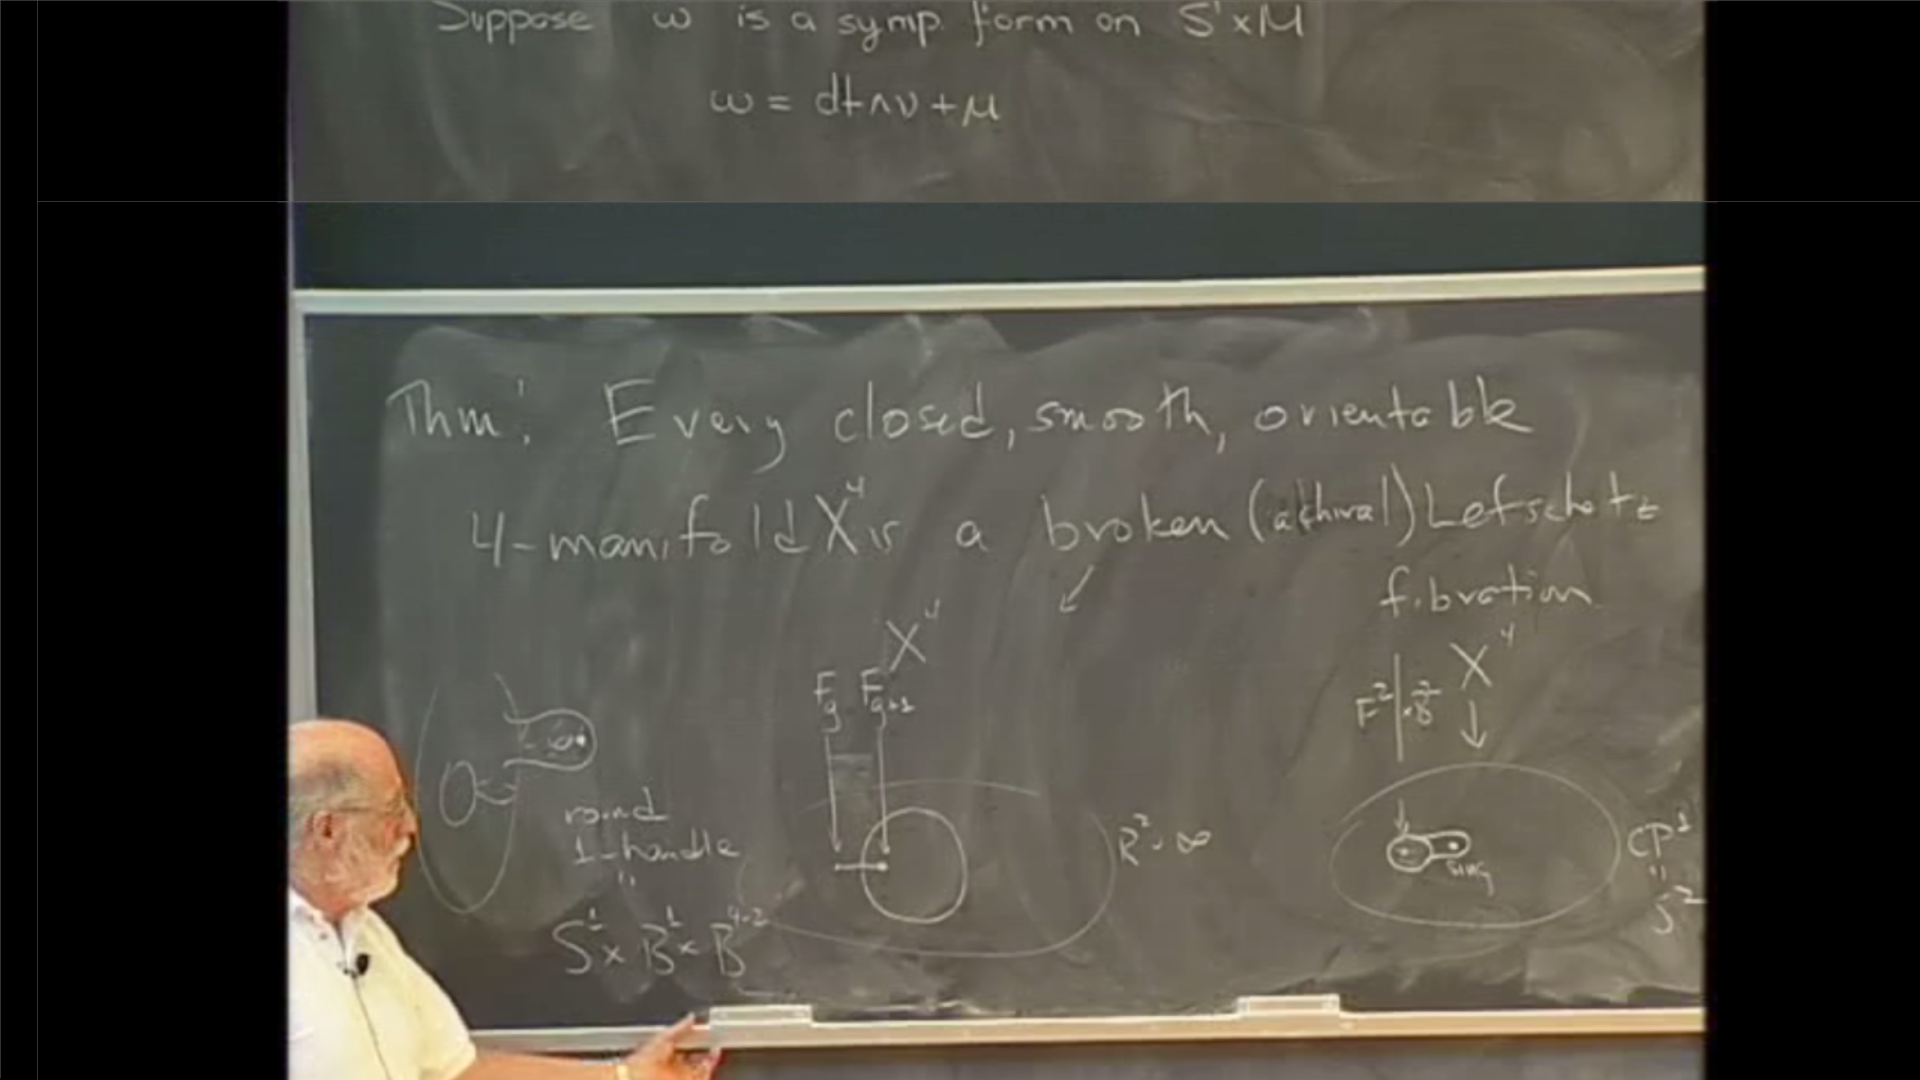 Suppose ω is a symp. form on S¹×M
ω = dt∧ν + μ
Thm: Every closed, smooth, orientable
4-manifold X⁴ is a broken (achiral) Lefschetz
fibration
X⁴
F_g F_{g+1}
X⁴
F² × B²
round
1-handle
"
S¹ × B¹ × B⁴⁻²
R² ∞
sing
CP¹
"
S²